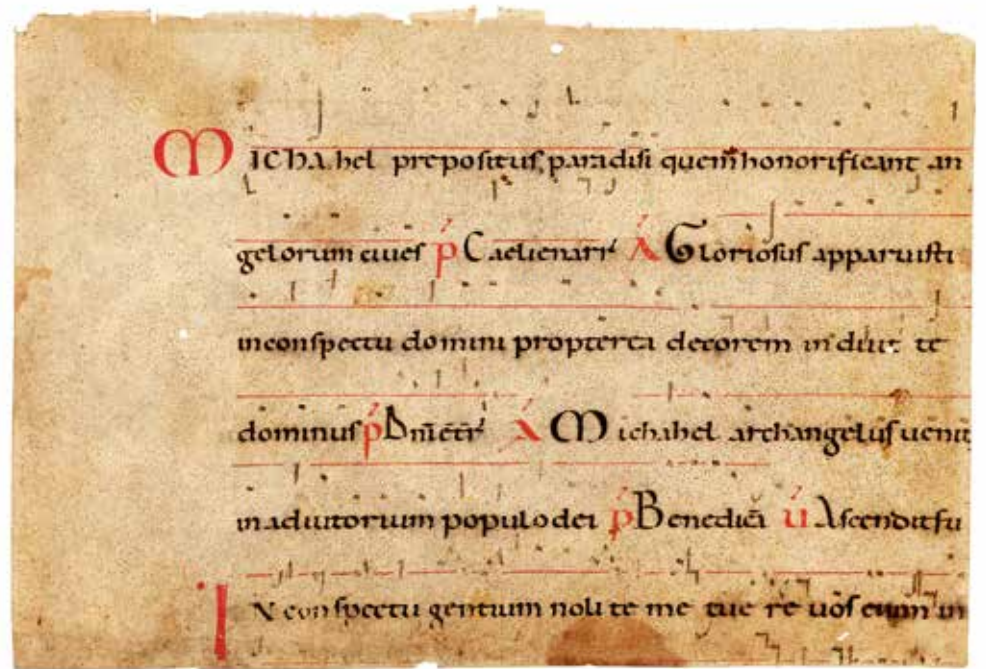 Michahel prepositus paradisi quem honorificant an
gelorum ciues p̄ Caelienarr̄ A Gloriosus apparuisti
inconspectu domini propterea decorem induit te
dominus p̄ Dn̄i ē tr̄ A Michahel archangelus uenit
inadiutorium populo dei p̄ Benedic̄ ū Ascendit fu
In conspectu gentium nolite me tue re uos enim in